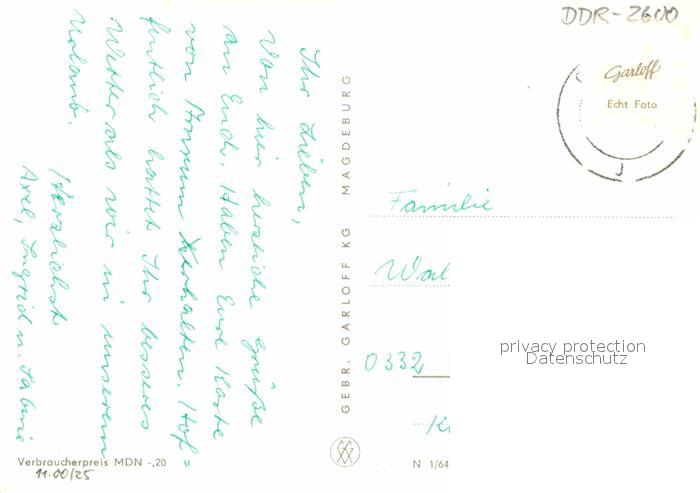 DDR-2600
Garloff
Echt Foto
Ihr Lieben,
Von hier herzliche Grüße
an Euch. Haben Eure Karte
von erhalten. Hof=
fentlich hattet Ihr besseres
Wetter als wir in unserem
Urlaub.
Herzlichst
Axel, Ingrid u. Sabine
GEBR. GARLOFF KG MAGDEBURG
Familie
Wal
0332
privacy protection
Datenschutz
Verbraucherpreis MDN -,20
11.00/25
N 1/64